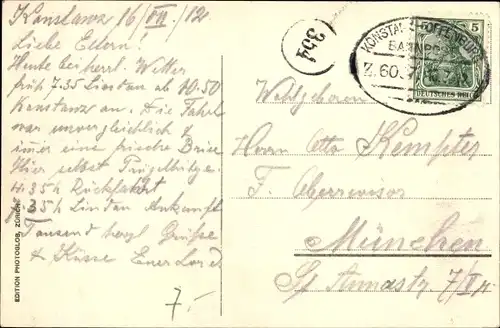 Konstanz 16/VII./12
Liebe Eltern!
Heute bei herrl. Wetter
früh 7.35 Lindau ab 10.50
Konstanz an. Die Fahrt
war unvergleichlich &
immer eine frische Brise
Hier selbst Prügelhitze.
4.35h Rückfahrt
35h Lindau Ankunft
Tausend herzl Grüße
& Küsse Euer
7.-
EDITION PHOTOGLOB, ZÜRICH
354
KONSTANZ-OFFENBURG
BAHNPOST
Z.60.
5
DEUTSCHES REICH
Wohlgeboren
Herrn Otto Kempter
F. Oberrevisor
München
St Annastr. 7/II r.